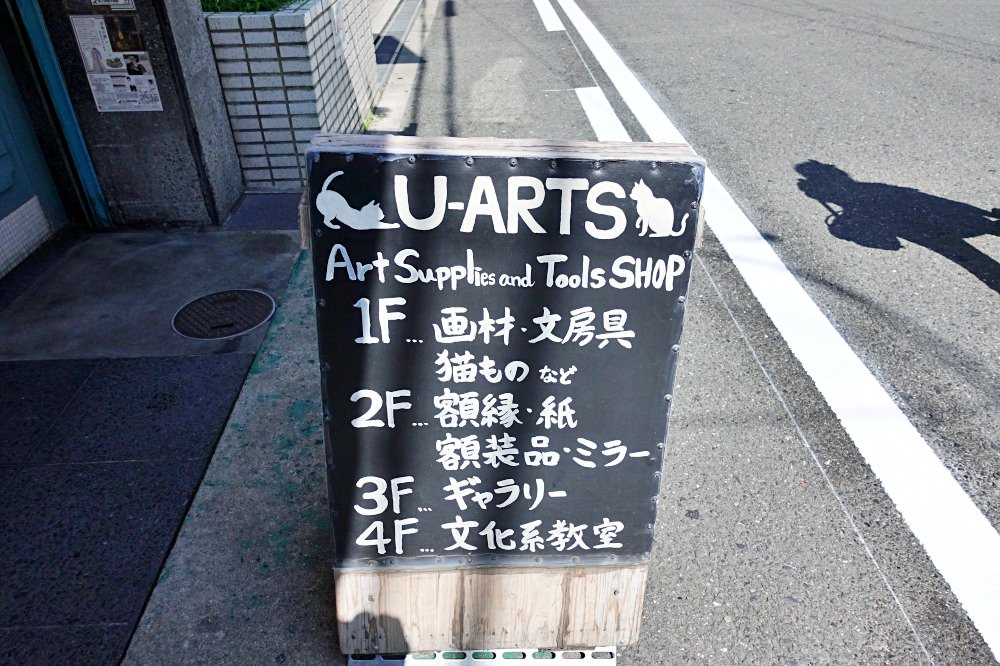 U-ARTS
Art Supplies and Tools SHOP
1F... 画材・文房具
猫もの など
2F... 額縁・紙
額装品・ミラー
3F... ギャラリー
4F... 文化系教室